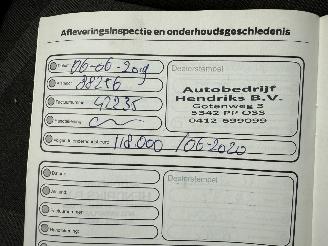 Afleveringsinspectie en onderhoudsgeschiedenis
Datum: 06-06-2019
Dealerstempel
88256
Autobedrijf
Hendriks B.V.
Gotenweg 3
5342 PP OSS
0412 699099
Factuurnummer: 42235
Handtekening:
Volgende onderhoudsbeurt: 118.000 / 06-2020
Datum:
Dealerstempel
Handtekening: